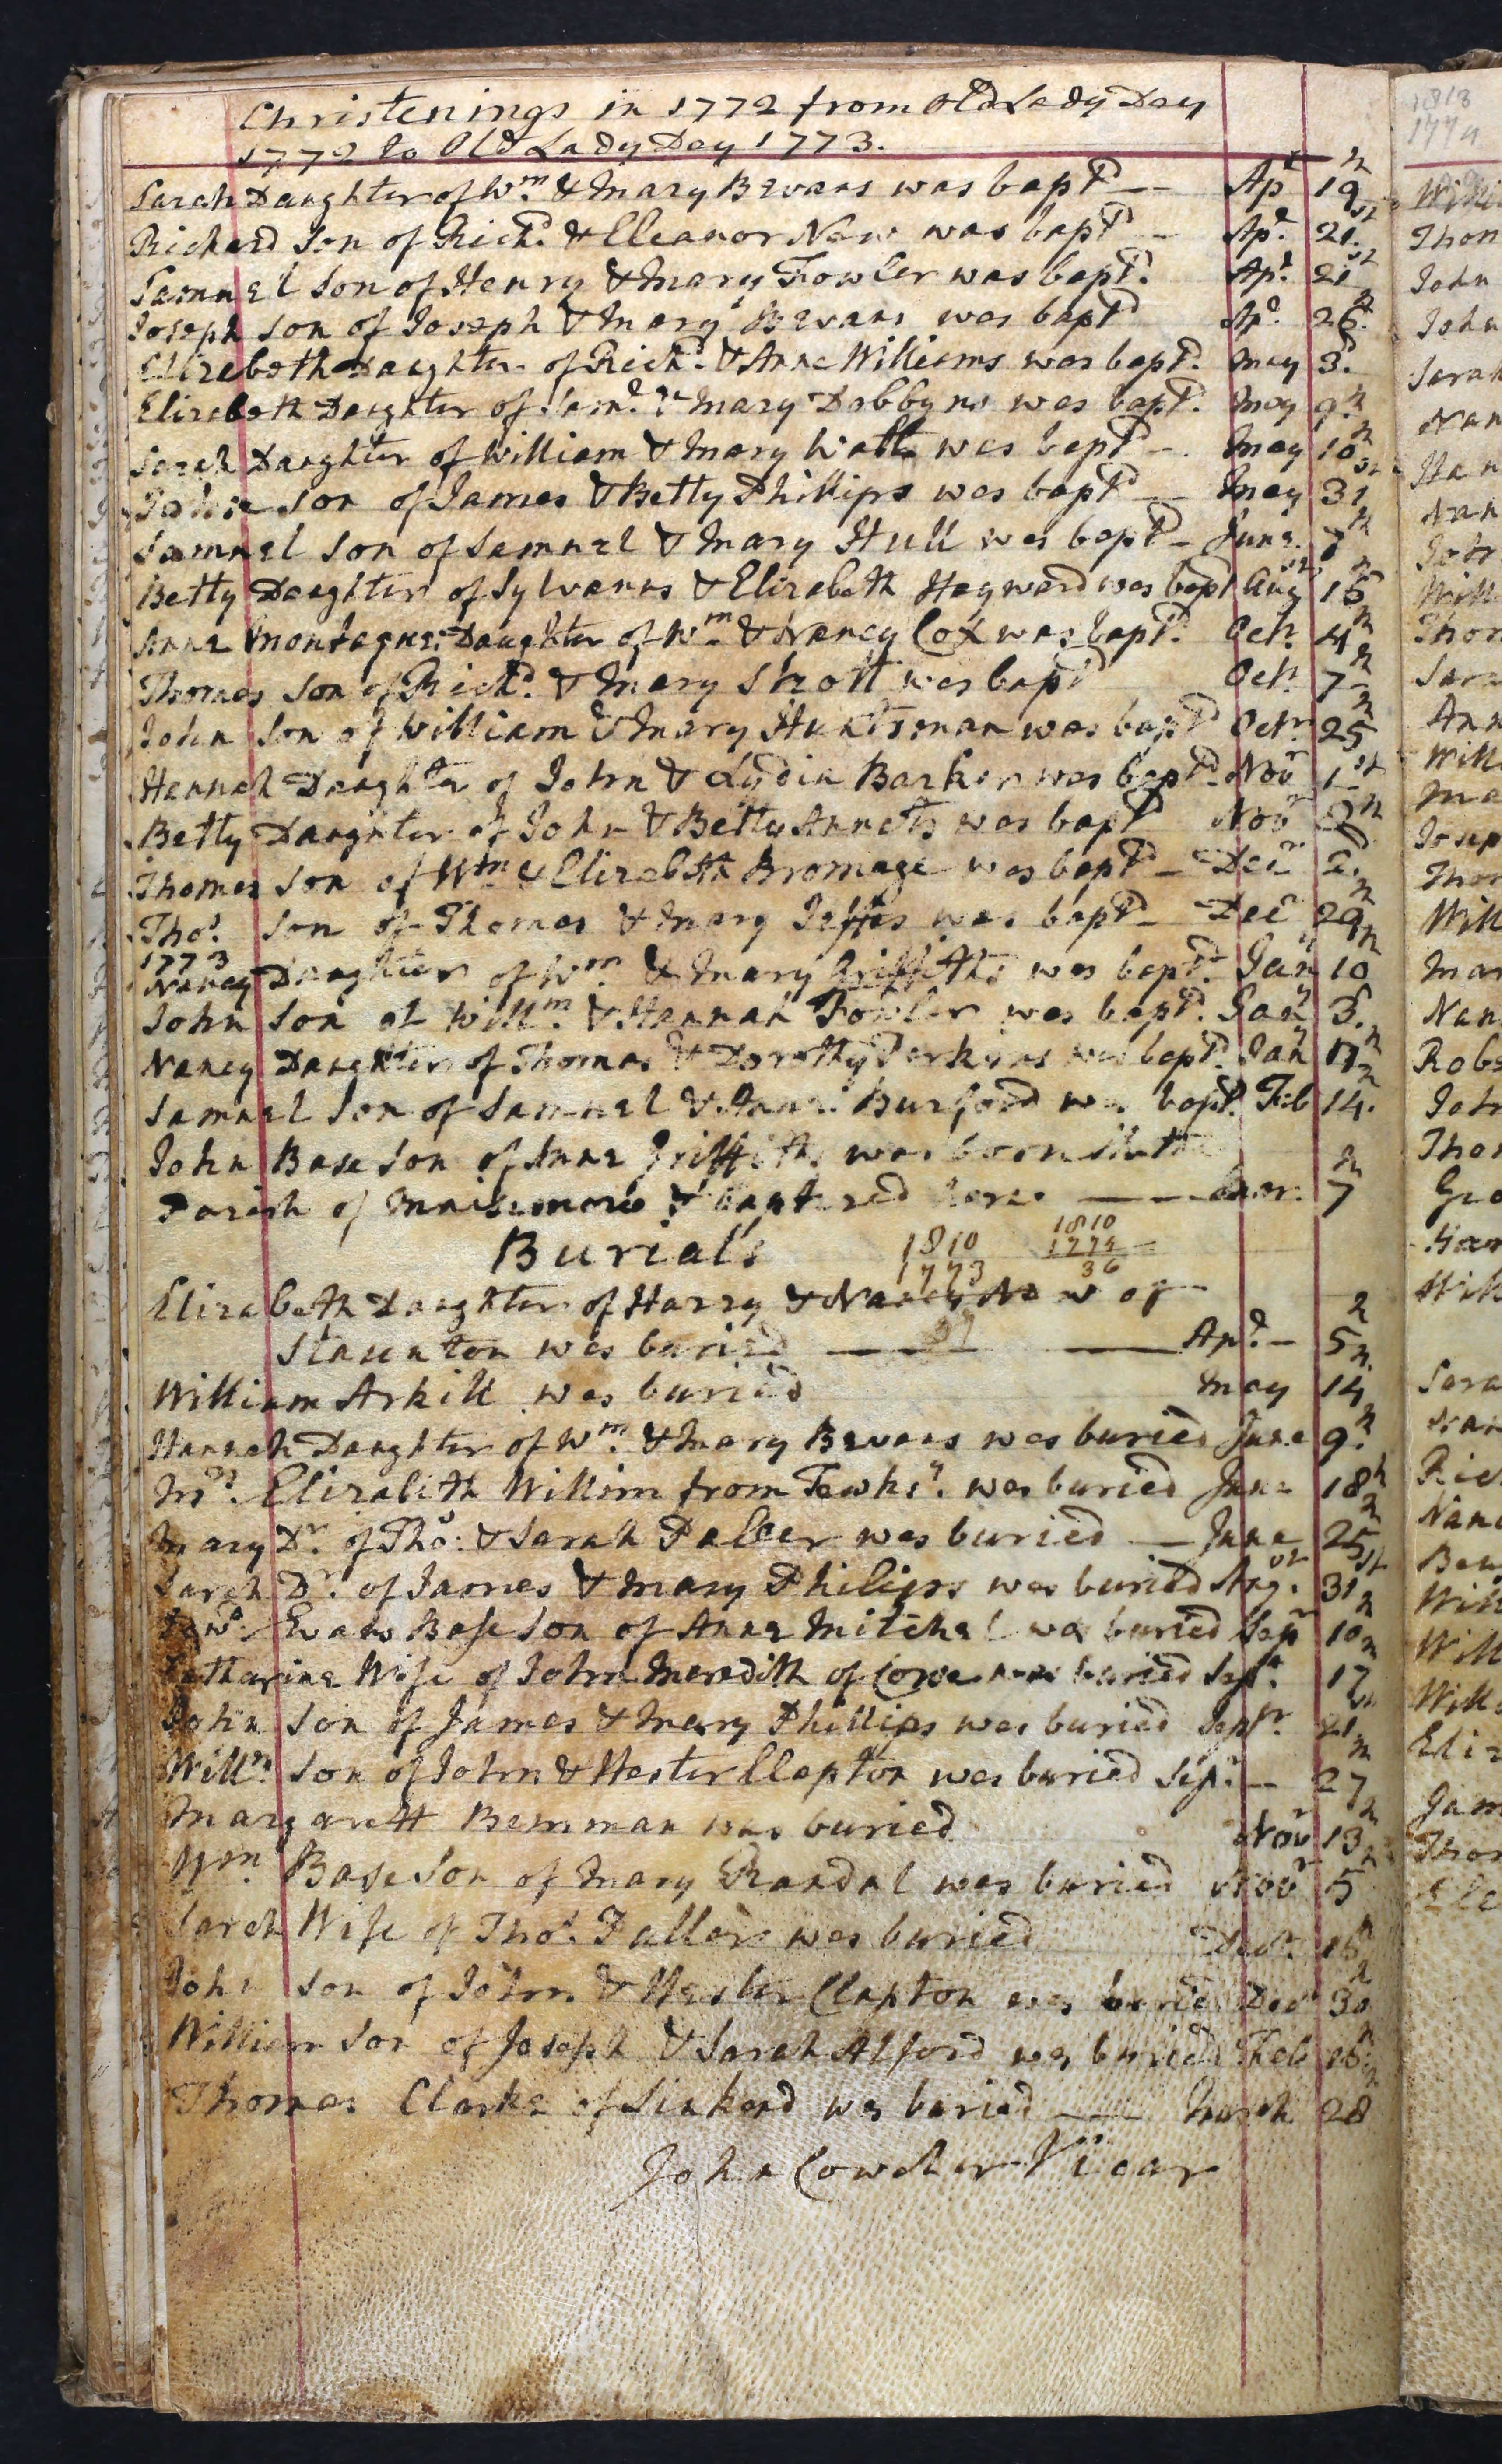 Christenings in 1772 from Old Lady Day
1772 to Old Lady Day 1773.
Sarah Daughter of Wm. & Mary Bevans was bapt'd — Apl 19th
Richard Son of Richd. & Eleanor New was bapt'd — Apl. 21st
Samuel Son of Henry & Mary Fowler was bapt'd. Apl. 21st
Joseph Son of Joseph & Mary Bevans was bapt'd Apl. 26th
Elizabeth Daughter of Richd. & Anne Williams was bapt'd. May 3d.
Elizabeth Daughter of Saml. & Mary Dobbyns was bapt'd. May 9th
Sarah Daughter of William & Mary Watts was bapt'd — May 10th
son of James & Betty Phillips was bapt'd — May 31st
Samuel Son of Samuel & Mary Hull was bapt'd — June 7th
Betty Daughter of Sylvanus & Elizabeth Hayward was bapt Augst 16th
Anne Montague Daughter of Wm. & Nancy Cox was bapt'd. Octr. 4th
Thomas Son of Richd. & Mary Strott was bapt'd Octr. 7th
John Son of William & Mary Huntsman was bapt'd Octr. 25th
Hannah Daughter of John & Lydia Barker was bapt'd Novr 1st
Betty Daughter of John & Betty Annetts was bapt'd Novr
Thomas Son of Wm. & Elizabeth Bromage was bapt'd — Decr 2d.
Thos. Son of Thomas & Mary Jeffes was bapt'd — Decr 29th
1773
Nancy Daughter of Wm. & Mary Griffiths was bapt'd. Jany 10th
John Son of Willm. & Hannah Fowler was bapt'd. Jany 3d.
Nancy Daughter of Thomas & Dorothy Perkins was bapt'd. Jany 17th
Samuel Son of Samuel & Anne Burford was bapt'd. Feb 14th.
John Base Son of Anne Griffiths was born in the
Parish of Maisemore & baptized here. — Mar. 7th
Burials
1810 1810
1773 1774
37 36
Elizabeth Daughter of Harry & Nancy New of
Staunton was buried — Apl. — 5th
William Arkill was buried May 14th
Hannah Daughter of Wm. & Mary Bevans was buried June 9th.
Mrs. Elizabeth Willim from Tewksy. was buried June 18th
Mary Dr. of Thos. & Sarah Paller was buried — June 25th
Sarah Dr. of James & Mary Philips was buried Augst. 31st
Edwd. Evans Base Son of Anne Mitchel was buried Sepr 10th
Catharine Wife of John Meredith of Corse was buried Sepr. 17th
John Son of James & Mary Phillips was buried Septr. 21st
Willm. Son of John & Hester Clapton was buried Sepr. — 27th
Margarett Bemman was buried Novr 13th
Wm. Base Son of Mary Randal was buried Novr 5th
Sarah Wife of Thos. Paller was buried Decr. 16th
John Son of John & Hester Clapton was buried Decr 30th
William Son of Joseph & Sarah Alford was buried Feb 26th
Thomas Clarke of Linkend was buried — March 28th
John Cowcher Vicar
1818
1774